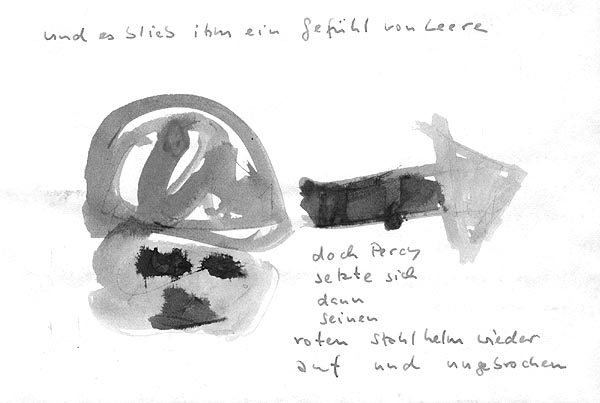 und es blieb ihm ein Gefühl von Leere
doch Percy
setzte sich
dann
seinen
roten Stahlhelm wieder
auf und ungebrochen